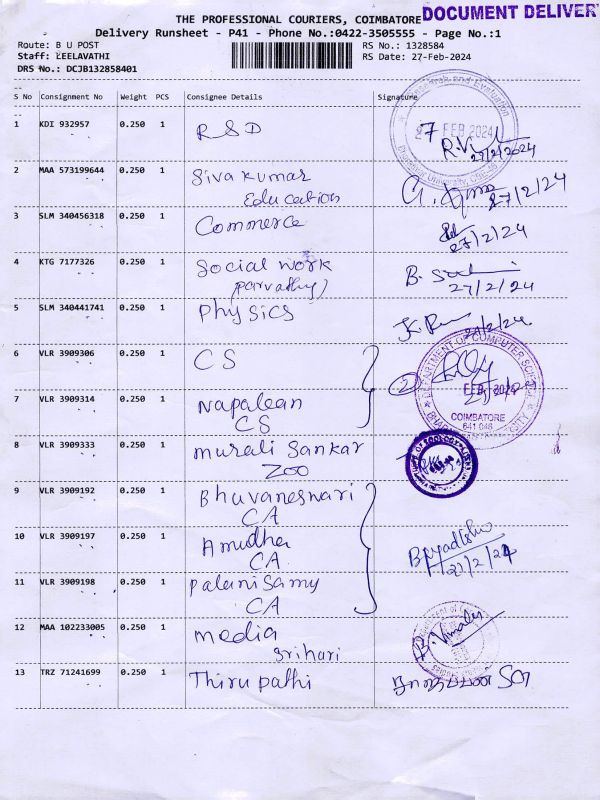 THE PROFESSIONAL COURIERS, COIMBATORE DOCUMENT DELIVER
Delivery Runsheet - P41 - Phone No.:0422-3505555 - Page No.:1
Route: B U POST
Staff: LEELAVATHI
DRS No.: DCJB132858401
RS No.: 1328584
RS Date: 27-Feb-2024
S No Consignment No Weight PCS Consignee Details Signature
1 KDI 932957 0.250 1 R&D
27 FEB 2024
27/2/2024
2 MAA 573199644 0.250 1 Sivakumar
Education
27/2/24
3 SLM 340456318 0.250 1 Commerce
27/2/24
4 KTG 7177326 0.250 1 Social work
parvathy)
27/2/24
5 SLM 340441741 0.250 1 Physics
6 VLR 3909306 0.250 1 CS
DEPARTMENT OF COMPUTER SCIENCE
COIMBATORE
641 046
7 VLR 3909314 0.250 1 Napalean
CS
8 VLR 3909333 0.250 1 Murali Sankar
Zoo
9 VLR 3909192 0.250 1 Bhuvaneswari
CA
10 VLR 3909197 0.250 1 Amudha
CA
27/2/24
11 VLR 3909198 0.250 1 Palanisamy
CA
12 MAA 102233005 0.250 1 Media
Srihari
13 TRZ 71241699 0.250 1 Thirupathi